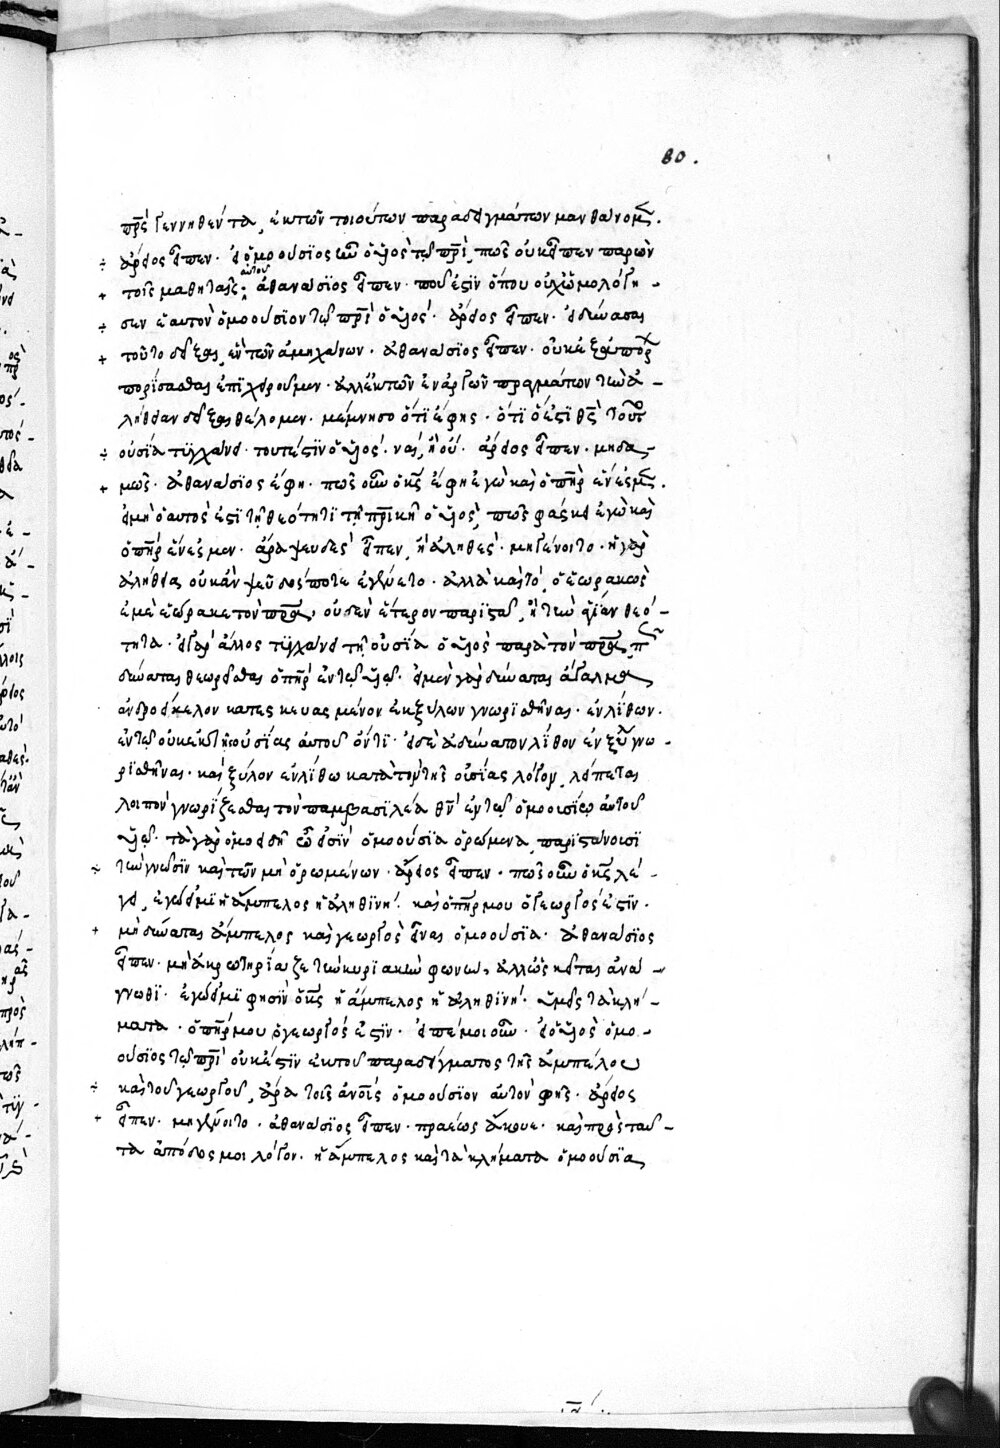 80.
πρ̅ς γεννηθέντα, ἐκ τῶν τοιούτων παραδειγμάτων μανθάνομ(εν).
÷ ἄρειος εἶπεν· εἰ ὁμοούσιος ὢν ὁ υἱὸς τῷ πρ̅ι, πῶς οὐκ εἶπεν παρὼν
+ τοῖς μαθηταῖς αὐτοῦ; ἀθανάσϊος εἶπεν· ποῦ ἐστϊν ὅπου οὐχ ὡμολόγη-
÷ σεν ἑαυτὸν ὁμοούσϊον τῷ πρ̅ι ὁ υἱός· ἄρειος εἶπεν· εἰ δείνασαι
+ τοῦτο δεῖξαι, ἓν τῶν ἀμηχάνων· ἀθανάσϊος εἶπεν· οὐκ
πορίσασθαι ἐπϊχειροῦμεν· ἀλλ' ἐκ τῶν ἐναργῶν πραγμάτων τὴν ἀ-
λήθειαν δεῖξαι θέλομεν· μέμνησο ὅτϊ ἔφης· ὅτϊ ὅ ἐστϊ θς̅
÷ οὐσία τϋγχάνει· τοῦτ' ἐστϊν ὁ υἱός· ναί, ἢ οὔ· ἄρειος εἶπεν· μηδα-
+ μῶς· ἀθανάσϊος ἔφη· πῶς οὖν ὁ κς̅ ἔφη ἐγὼ καὶ ὁ πη̅ρ ἕν ἐσμ(εν).
εἰ μὴ ὁ αὐτός ἐστϊ τῇ θεότητϊ τῇ πρ̅ικῇ ὁ υἱός, πῶς φάσκει ἐγὼ καὶ
ὁ πη̅ρ ἕν ἐσμεν· ἆρα ψευδὲς εἶπεν, ἢ ἀληθές· μὴ γένοιτο· ἡ γὰρ
ἀλήθεια οὐκ ἂν ψεῦδός ποτε ἐγίνετο· ἀλλὰ καὶ τό, ὁ ἑωρακὼς
ἐμὲ ἑώρακε τὸν πρ̅α, οὐδὲν ἕτερον παρϊστᾷ, ἢ τὴν μίαν θεό-
τητα· εἰ γὰρ ἄλλος τϋγχάνει τῇ οὐσίᾳ ὁ υἱὸς παρὰ τὸν πρ̅α, π(ῶς)
δείναται θεωρεῖσθαι ὁ πη̅ρ ἐν τῷ υἱῷ· εἰ μὲν γὰρ δείναται ἄγαλμα
ἀνδροείκελον κατεσκευασμένον ἐκ ξύλων γνωρϊσθῆναι· ἐν λίθων·
ἐν τῷ οὐκ ἐκ τῆς οὐσίας αὐτοῦ ὄντϊ· εἰ δὲ ἀδείνατον λίθον ἐν ξύλῳ γνω-
ρϊσθῆναι· καὶ ξύλον ἐν λίθω κατὰ τὸν τῆς οὐσίας λόγον, λείπεται
λοιπὸν γνωρίζεσθαι τὸν παμβασϊλέα θν̅ ἐν τῷ ὁμοουσίῳ αὐτοῦ
υἱῷ· τὰ γὰρ ὁμοειδῆ ὧν εἰσϊν ὁμοούσϊα ὁρώμενα, παρϊστάνουσϊ
÷ τὴν γνῶσϊν καὶ τῶν μὴ ὁρωμένων· ἄρειος εἶπεν· πῶς οὖν ὁ κς̅ λέ-
γει, ἐγώ εἰμϊ ἡ ἄμπελος ἡ ἀληθϊνή· καὶ ὁ πη̅ρ μου ὁ γεωργός ἐστϊν·
+ μὴ δείναται ἄμπελος καὶ γεωργὸς εἶναι ὁμοούσϊα· ἀθανάσϊος
εἶπεν· μὴ ἀκρωτηρίαζε τὴν κυρϊακὴν φωνὴν, ἀλλ' ὡς κεῖται ἀνά-
γνωθϊ· ἐγώ εἰμϊ φησϊν ὁ κς̅ ἡ ἄμπελος ἡ ἀληθϊνή· ὑμεῖς τὰ κλή-
ματα· ὁ πη̅ρ μου ὁ γεωργός ἐστϊν· εἰπέ μοι οὖν· εἰ ὁ υἱὸς ὁμο-
ούσϊος τῷ πρ̅ι οὐκ ἔστϊν ἐκ τοῦ παραδείγματος τῆς ἀμπέλου
÷ καὶ τοῦ γεωργοῦ, ἆρα τοῖς ἀν̅οις ὁμοούσϊον αὐτὸν φῂς· ἄρειος
+ εἶπεν· μὴ γένοιτο· ἀθανάσϊος εἶπεν· πραέως ἄκουε· καὶ πρὸς ταῦ-
τα ἀπόδος μοι λόγον· ἡ ἄμπελος καὶ τὰ κλήματα ὁμοούσϊα